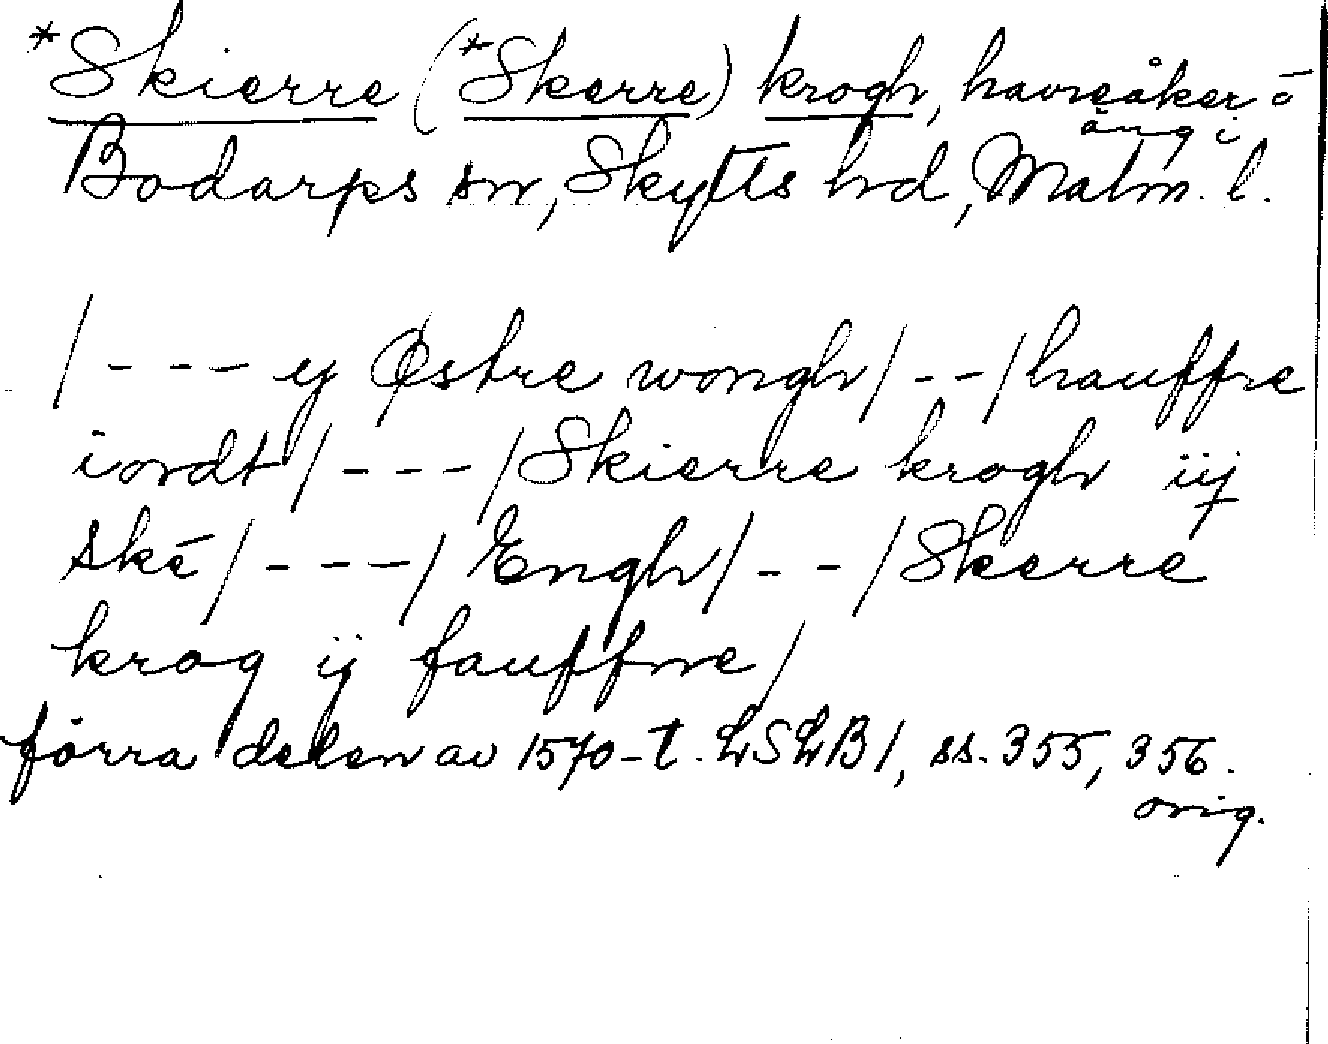 *Skierre (*Skerre) krogh, havreåker o
äng i
Bodarps sn, Skytts hd, Malm. l.
/--- ij Østre wongh/--/hauffre
iordt/---/Skierre krogh iij
ske/---/Engh/--/Skerre
krog ij fauffne/
förra delen av 1570-t. LSLB1, ss. 355, 356.
orig.